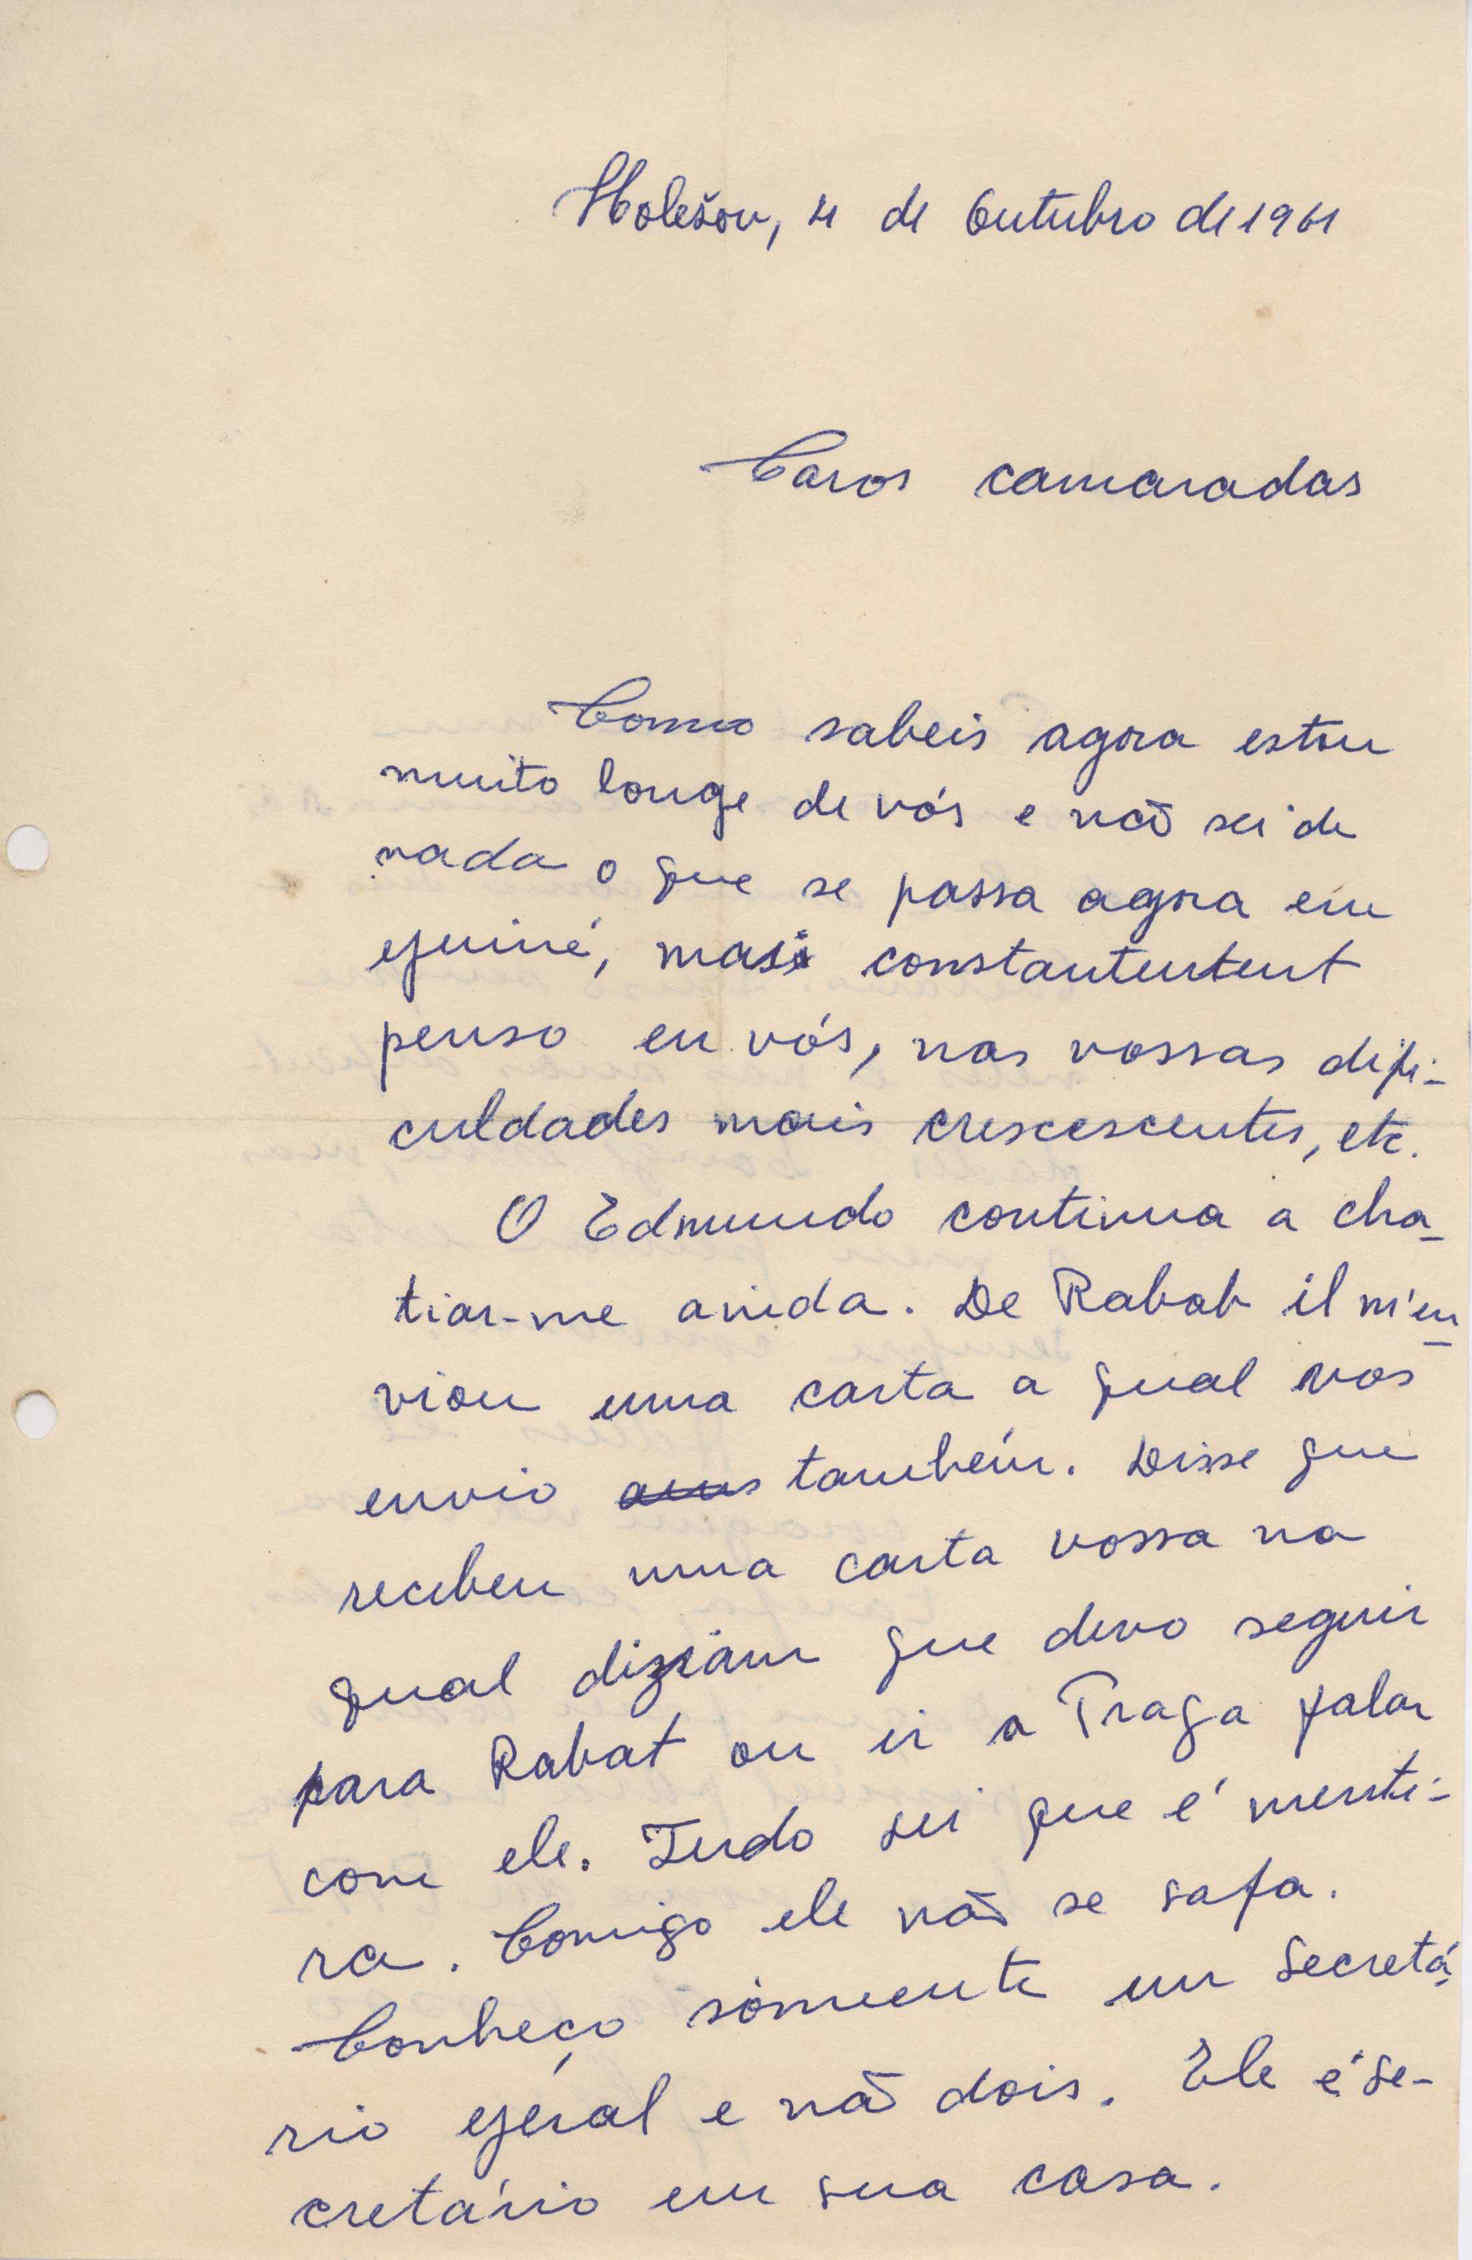 Holešov, 4 de Outubro de 1961
Caros camaradas
Como sabeis agora estou
muito longe de vós e não sei de
nada o que se passa agora em
Guiné, mas constantentent
penso en vós, nas vossas difi-
culdades mais crescescentes, etc.
O Edmundo continua a cha-
tiar-me ainda. De Rabat il m'en-
viou uma carta a qual vos
envio também. Disse que
recebeu uma carta vossa na
qual diziam que devo seguir
para Rabat ou ir a Praga falar
com ele. Tudo sei que é menti-
ra. Comigo ele não se safa.
Conheço sòmente um Secretá-
rio Geral e não dois. Ele é Se-
cretário em sua casa.